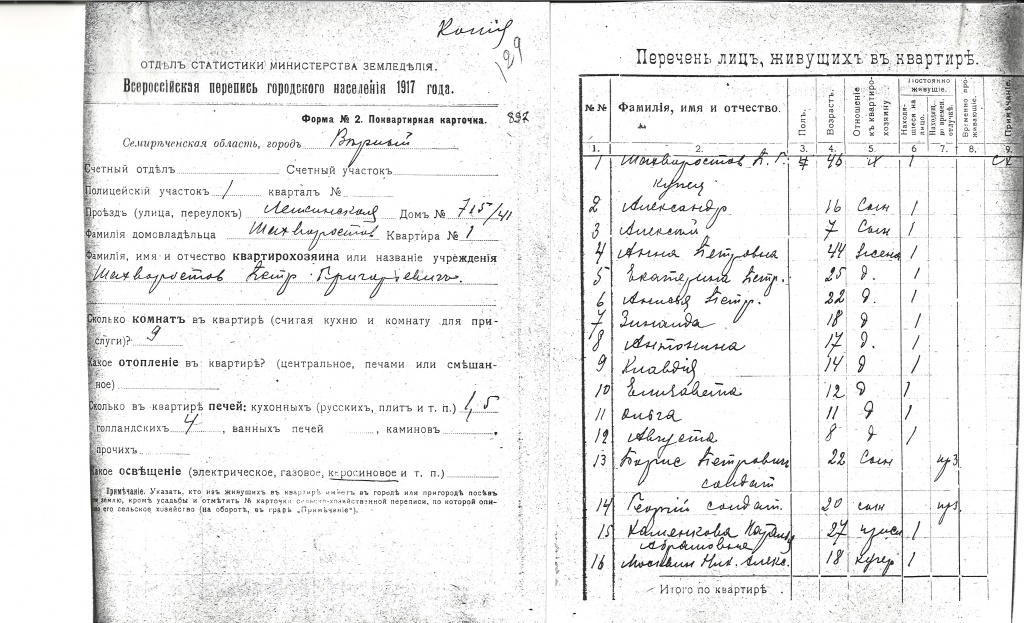 Копія
129
ОТДѢЛЪ СТАТИСТИКИ МИНИСТЕРСТВА ЗЕМЛЕДѢЛІЯ.
Всероссійская перепись городского населенія 1917 года.
Форма № 2. Поквартирная карточка. 897
Семирѣченская область, городъ Вѣрный
Счетный отдѣлъ Счетный участокъ
Полицейскій участокъ 1 кварталъ №
Проѣздъ (улица, переулокъ) Домъ № 715/41
Фамилія домовладѣльца Шахворостовъ Квартира № 1
Фамилія, имя и отчество квартирохозяина или названіе учрежденія
Шахворостовъ Петр Григоріевичъ.
Сколько комнатъ въ квартирѣ (считая кухню и комнату для при-
слуги)? 9
Какое отопленіе въ квартирѣ? (центральное, печами или смѣшан-
ное)
Сколько въ квартирѣ печей: кухонныхъ (русскихъ, плитъ и т. п.) 1,5
голландскихъ 4, ванныхъ печей , каминовъ ,
прочихъ
Какое освѣщеніе (электрическое, газовое, керосиновое и т. п.)
Примѣчаніе. Указать, кто изъ живущихъ въ квартирѣ имѣетъ въ городѣ или пригородѣ посѣвъ
землю, кромѣ усадьбы и отмѣтить № карточки сельско-хозяйственной переписи, по которой опи-
его сельское хозяйство (на оборотѣ, въ графѣ „Примѣчаніе“).
Перечень лицъ, живущихъ въ квартирѣ.
№№ Фамилія, имя и отчество. Полъ. Возрастъ. Отношеніе къ квартирохозяину Постоянно живущіе. Находящіеся на лицо. Находящ. во времен. отлучкѣ. Временно проживающіе. Примѣчаніе.
1. 2. 3. 4. 5. 6 7. 8. 9.
1 Шахворостов П. Г. 46 х 1 СХ
купец
2 Александр 16 Сын 1
3 Алексѣй 7 Сын 1
4 Анна Петровна 44 жена 1
5 Екатерина Петр. 25 д. 1
6 Петр. 22 д. 1
7 Зинаида 18 д 1
8 Антонина 17 д. 1
9 Клавдія 14 д 1
10 Елизавета 12 д 1
11 Ольга 11 д 1
12 Августа 8 д 1
13 Борис Петрович 22 Сын
солдат
14 Георгій солдат. 20 сын
15 27 1
Абрамовна
16 Москвин Ник. Алекс. 18 кучер 1
Итого по квартирѣ